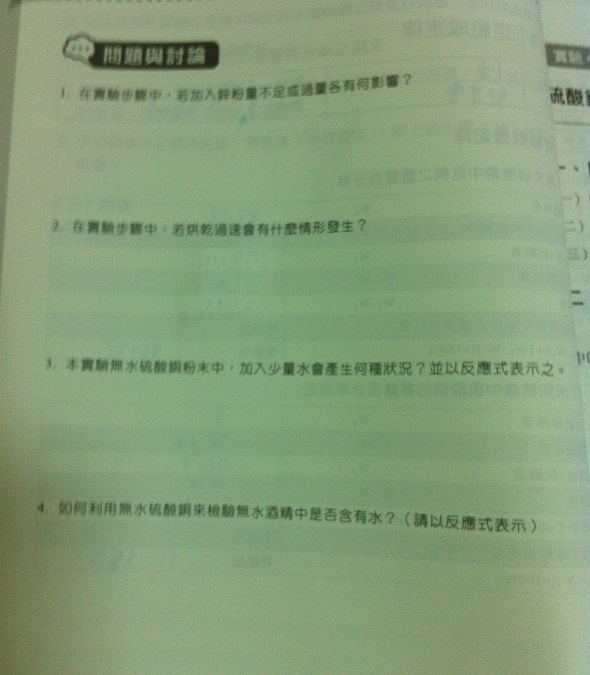 問題與討論
1. 在實驗步驟中，若加入鋅粉量不足或過量各有何影響？
2. 在實驗步驟中，若烘乾過速會有什麼情形發生？
3. 本實驗無水硫酸銅粉末中，加入少量水會產生何種狀況？並以反應式表示之。
4. 如何利用無水硫酸銅來檢驗無水酒精中是否含有水？（請以反應式表示）
實驗
硫酸
一、
一）
二）
三）
二